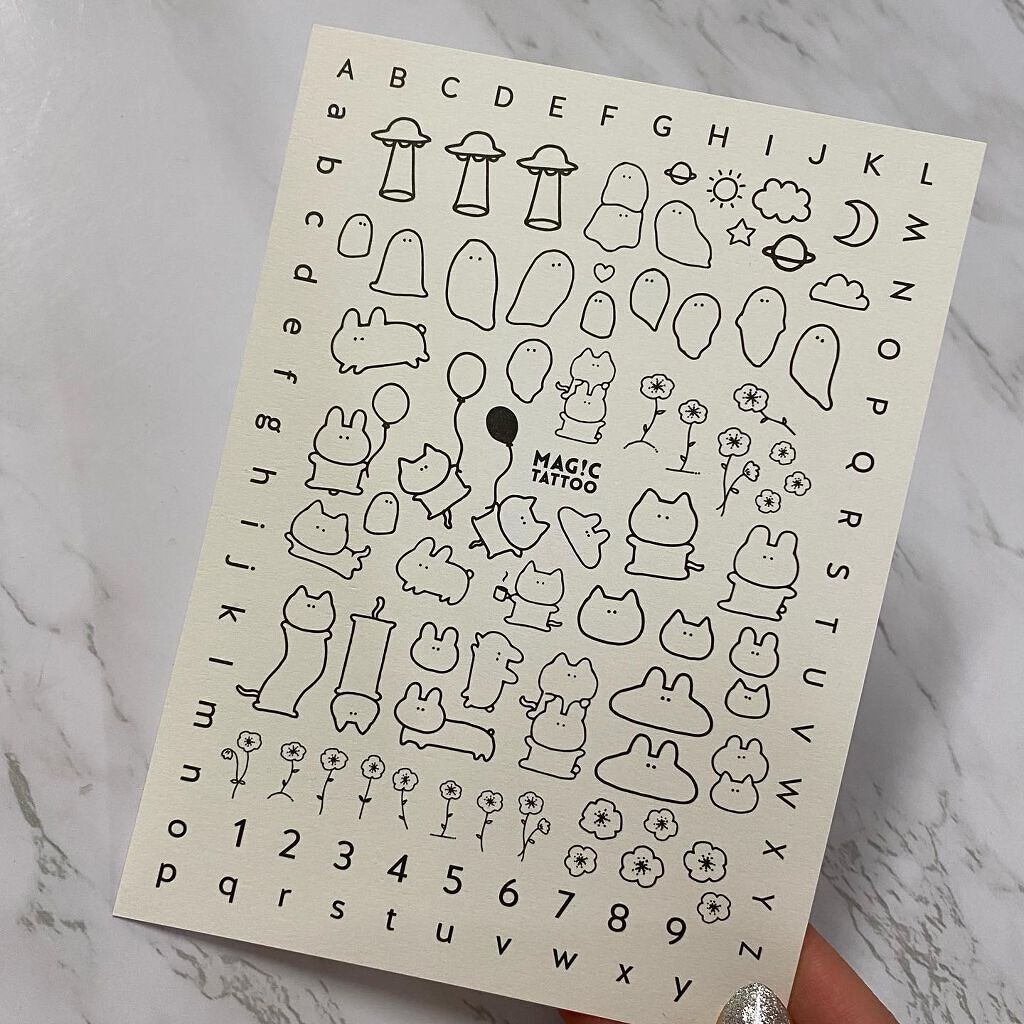 A B C D E F G H I J K L
M N O P Q R S T U V W X Y Z
a b c d e f g h i j k l m n o p
MAG!C
TATTOO
1 2 3 4 5 6 7 8 9
q r s t u v w x y